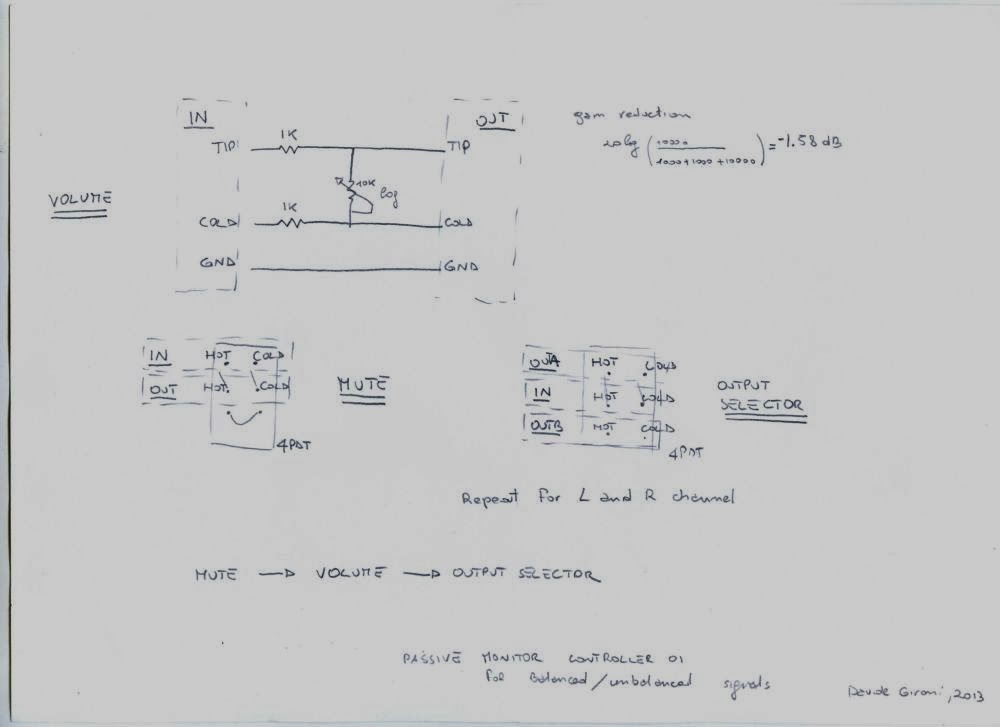 IN
OUT
gain reduction
1K
TIP
TIP
20log (10000 / 1000+1000+10000) = -1.58 dB
10K
log
VOLUME
1K
COLD
COLD
GND
GND
IN HOT COLD
OUT HOT COLD
MUTE
4PDT
OUTA HOT COLD
IN HOT COLD
OUTB HOT COLD
OUTPUT
SELECTOR
4PDT
Repeat for L and R channel
MUTE → VOLUME → OUTPUT SELECTOR
PASSIVE MONITOR CONTROLLER 01
for balanced/unbalanced signals
Davide Gironi, 2013